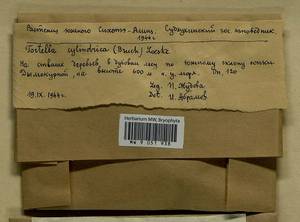 Растения южного Сихотэ-Алиня, Судзухинский гос. заповедник
1944 г.
Tortella cylindrica (Bruch) Loeske
На стволе деревьев, в дубовом лесу по южному склону
на высоте 600 м н. ур. моря. Оп. 120
19.IX.1944 г.
Leg. П. Жудова
Det. И. Абрамов
Herbarium MW, Bryophyta
MW 9 051 938